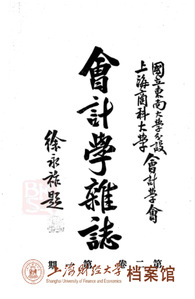 國立東南大學分設
上海商科大學
會計學會
會計學雜誌
徐永祚題
第二卷
第
期
上海财经大学
档案馆
Shanghai University of Finance and Economics